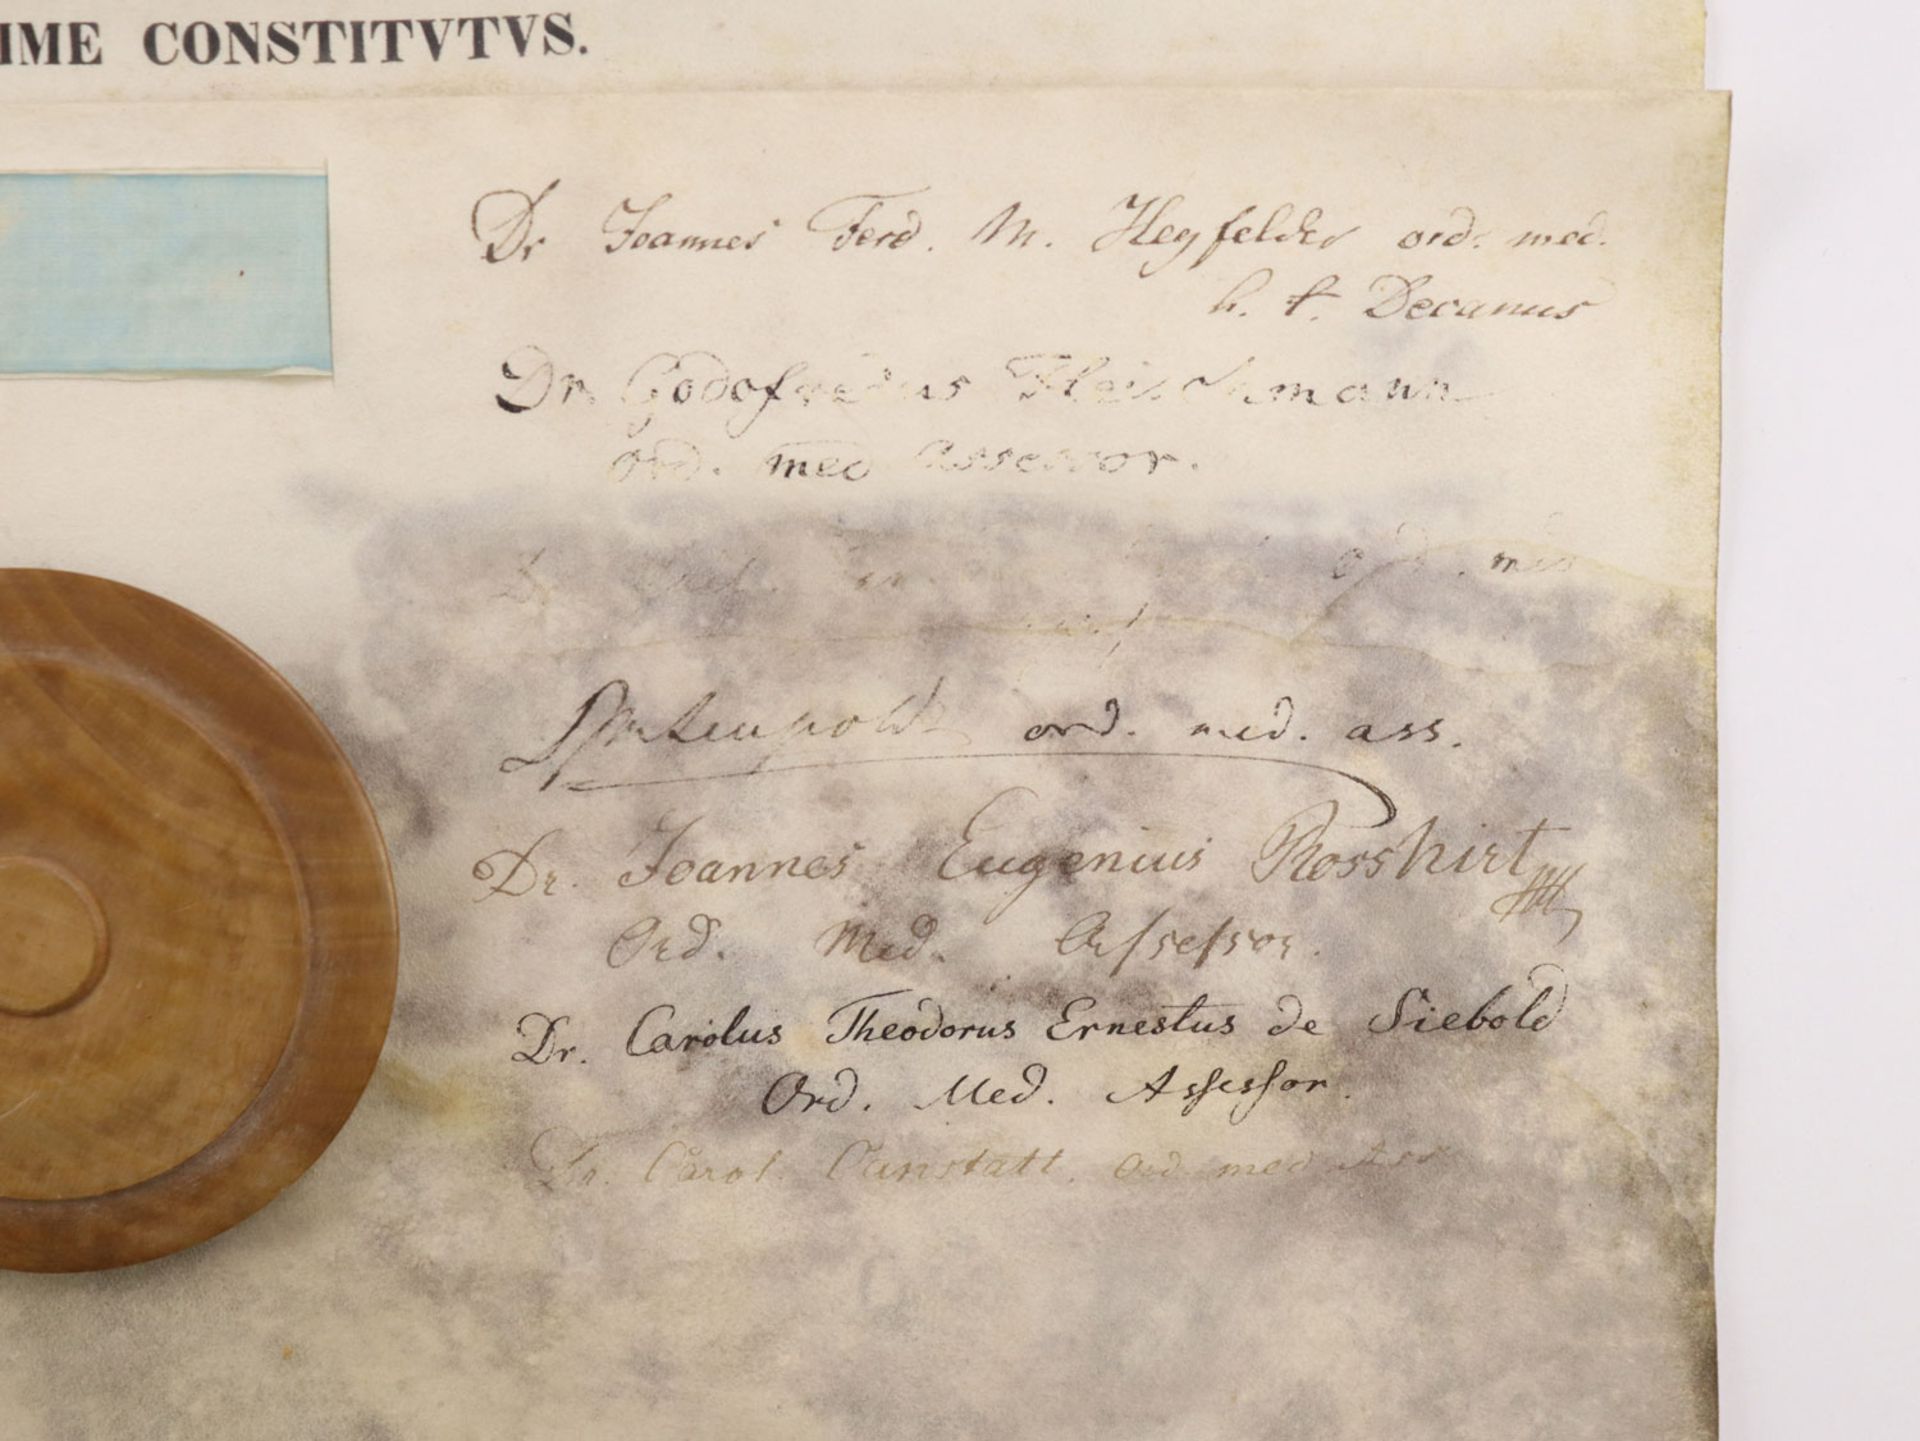 IME CONSTITVTVS.
Dr Joannes Ferd. M. Heyfelder ord. med.
h. t. Decanus
Dr. Godofredus Fleischmann
ord. med Assessor.
med
Leupoldt ord. med. ass.
Dr. Joannes Eugenius Rosshirt
Ord. Med. Assessor.
Dr. Carolus Theodorus Ernestus de Siebold
Ord. Med. Assessor.
Dr. Carol. Canstatt. Ord med Ass